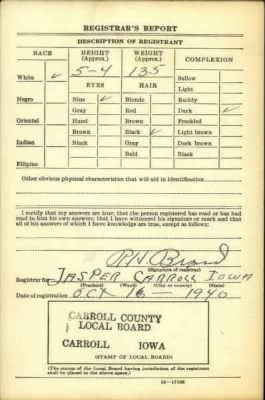 REGISTRAR'S REPORT
DESCRIPTION OF REGISTRANT
RACE HEIGHT (Approx.) WEIGHT (Approx.) COMPLEXION
White ✓ 5-4 135 Sallow
EYES HAIR Light
Negro Blue ✓ Blonde Ruddy
Gray Red Dark ✓
Oriental Hazel Brown Freckled
Brown Black ✓ Light brown
Indian Black Gray Dark brown
Bald Black
Filipino
Other obvious physical characteristics that will aid in identification
I certify that my answers are true; that the person registered has read or has had
read to him his own answers; that I have witnessed his signature or mark and that
all of his answers of which I have knowledge are true, except as follows:
(Signature of registrar)
Registrar for JASPER CARROLL IOWA
(Precinct) (Ward) (City or county) (State)
Date of registration OCT 16 - 1940
CARROLL COUNTY
LOCAL BOARD
CARROLL IOWA
(STAMP OF LOCAL BOARD)
(The stamp of the Local Board having jurisdiction of the registrant
shall be placed in the above space.)